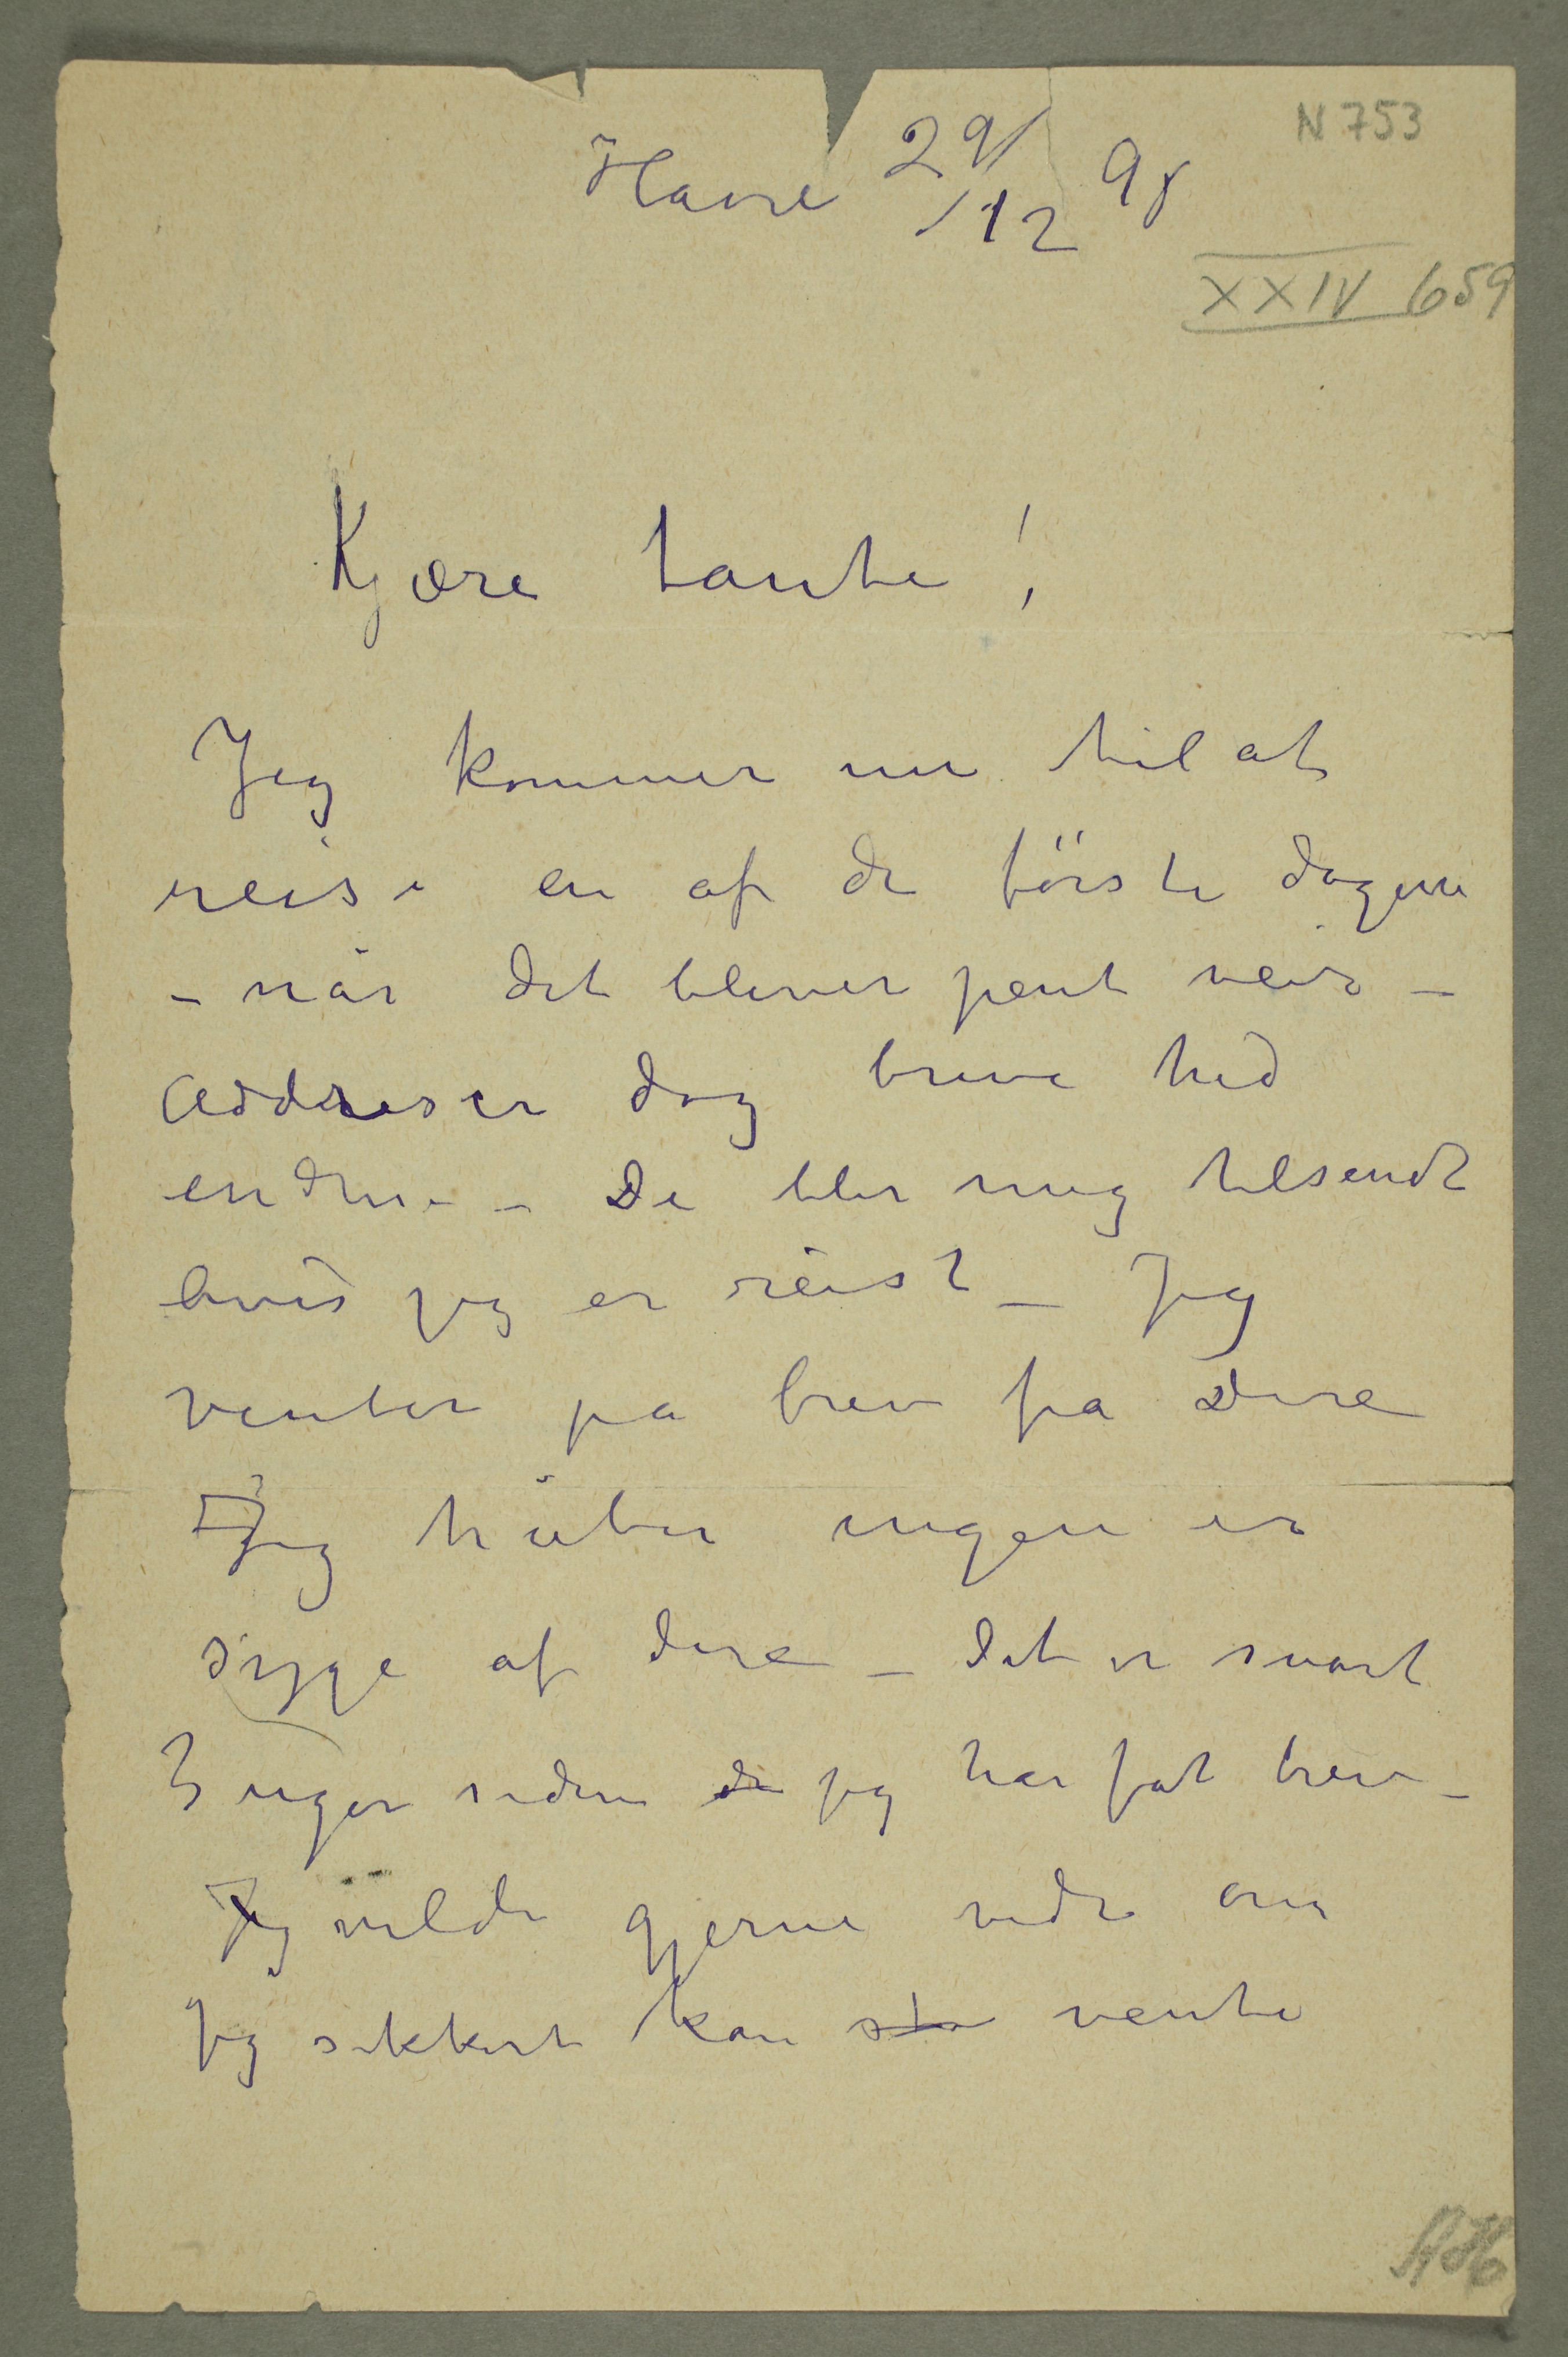 N 753
Havre 29/12 98
XXIV 659
Kjære tante!
Jeg kommer nu til at
reise en af de förste dagene
– når det bliver pent veir –
Addresser dog breve hid
endnu – De blir mig tilsendt
hvis jeg er reist – Jeg
venter på brev fra Dere
Jeg håber ingen er
syge af dere – det er snart
3 uger siden de jeg har fåt brev –
Jeg vilde gjerne vide om
jeg sikkert kan sta vente